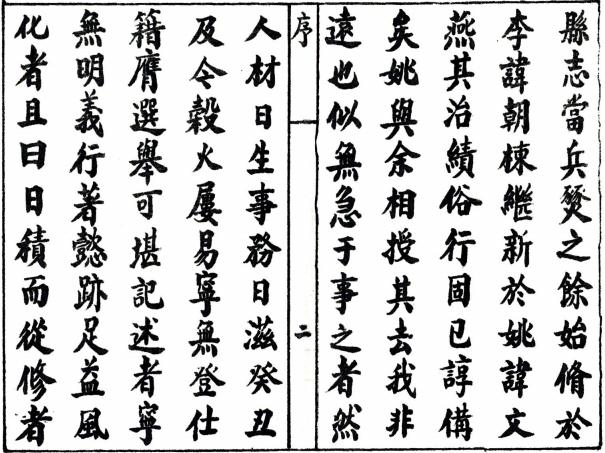 縣志當兵燹之餘始脩於
李諱朝棟繼新於姚諱文
燕其治績俗行固已諄備
矣姚與余相授其去我非
遠也似無急于事之者然
序
二
人材日生事務日滋癸丑
及今穀火屢易寧無登仕
籍膺選舉可堪記述者寧
無明義行著懿跡足益風
化者且曰日積而從修者